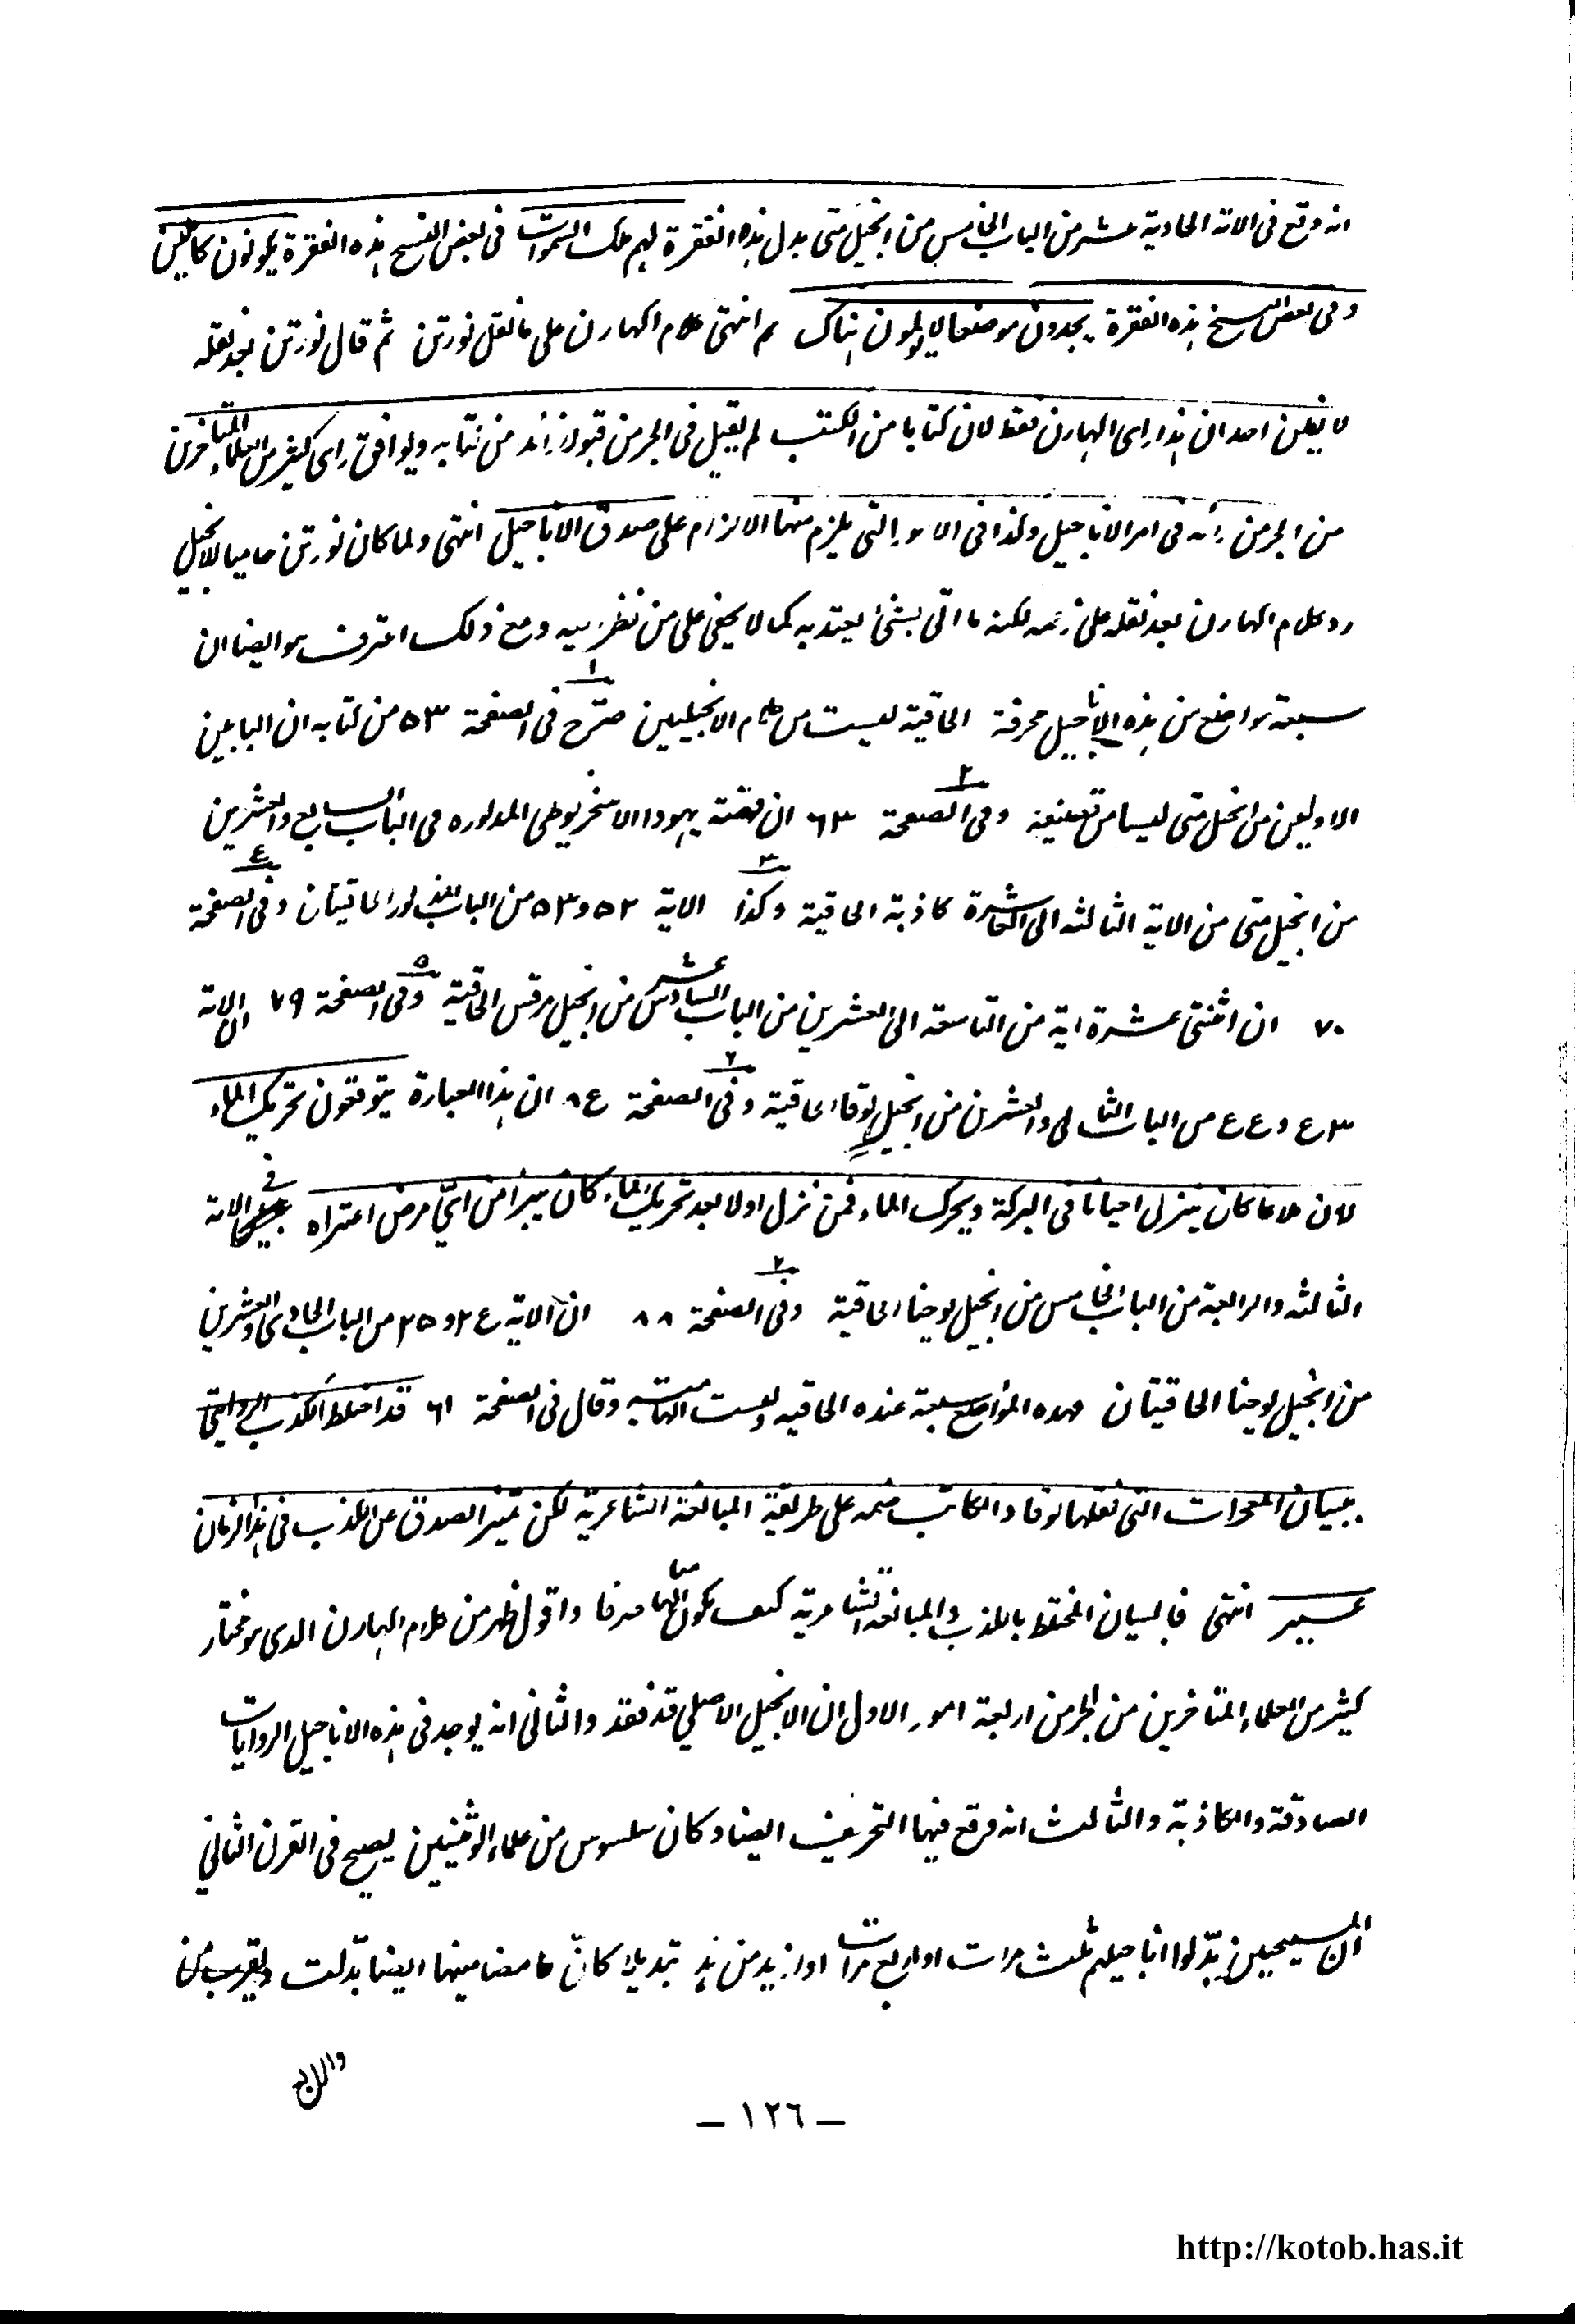 انه وقع فى الاية الحادية عشر من الباب الخامس من انجيل متى بدل هذه الفقرة لهم ملك السموات فى بعض النسخ هذه الفقرة يكونون كاملين
وفى بعض النسخ هذه الفقرة يجدون موضعا لا يولمون هناك ثم انتهى كلام اكهارن على ما نقل نورتن ثم قال نورتن بعد نقله
لا يظن احد ان هذا راى اكهارن فقط لان كتابا من الكتب لم يقبل فى الجرمن قبولا زائد من كتابه ويوافق راى كثير من العلماء المتاخرين
من الجرمن رأيه فى امر الاناجيل وكذا فى الامور التى يلزم منها الالزام على صدق الاناجيل انتهى ولما كان نورتن حاميا للانجيل
رد كلام اكهارن بعد نقله على زعمه لكنه ما اتى بشئ يعتد به كما لا يخفى على من نظر اليه ومع ذلك اعترف هو ايضا ان
سبعة مواضع من هذه الاناجيل محرفة الحاقية ليست من كلام الانجيليين ١ صرّح فى الصفحة ٥٣ من كتابه ان البابين
الاولين من انجيل متى ليسا من تصنيفه ٢ وفى الصفحة ٦٣ ان قصة يهودا الاسخريوطى المذكوره فى الباب السابع والعشرين
من انجيل متى من الاية الثالثه الى العاشرة كاذبة الحاقية ٣ وكذا الاية ٥٢ و٥٣ من الباب المذكور الحاقيتان ٤ وفى الصفحة
٧٠ ان اثنتى عشرة اية من التاسعة الى العشرين من الباب السادس عشر من انجيل مرقس الحاقية ٥ وفى الصفحة ٧٩ ان الاية
٤٣ و٤٤ من الباب الثانى والعشرين من انجيل لوقا الحاقية ٦ وفى الصفحة ٨٤ ان هذا العبارة يتوقعون تحريك الماء
لان ملاكا كان ينزل احيانا فى البركة ويحرك الماء فمن نزل اولا بعد تحريك الماء كان يبرأ من اىّ مرض اعتراه فى الاية
الثالثه والرابعة من الباب الخامس من انجيل يوحنا الحاقية ٧ وفى الصفحة ٨٨ ان الاية ٢٤ و٢٥ من الباب الحادى والعشرين
من انجيل يوحنا الحاقيتان فهذه المواضع سبعة عنده الحاقيه وليست الهامية وقال فى الصفحة ٦١ قد اختلط الكذب الروايتى
ببيان المعجزات التى نقلها لوقا والكاتب ضمه على طريقة المبالغة الشاعرية لكن تميز الصدق عن الكذب فى هذا الزمان
عسير انتهى فالبيان المختلط بالكذب والمبالغة الشاعرية كيف يكون الهاميا صرفا واقول ظهر من كلام اكهارن الذى هو مختار
كثير من العلماء المتاخرين من الجرمن اربعة امور الاول ان الانجيل الاصلى قد فقد والثانى انه يوجد فى هذه الاناجيل الروايات
الصادقة والكاذبة والثالث انه وقع فيها التحريف ايضا وكان سلسوس من علماء الوثنيين يصيح فى القرن الثانى
ان المسيحيين بدّلوا اناجيلهم ثلث مرات او اربع مرات او ازيد من هذ تبديلا كانّ مضامينها ايضا بدّلت
والرابع
— ١٢٦ —
http://kotob.has.it